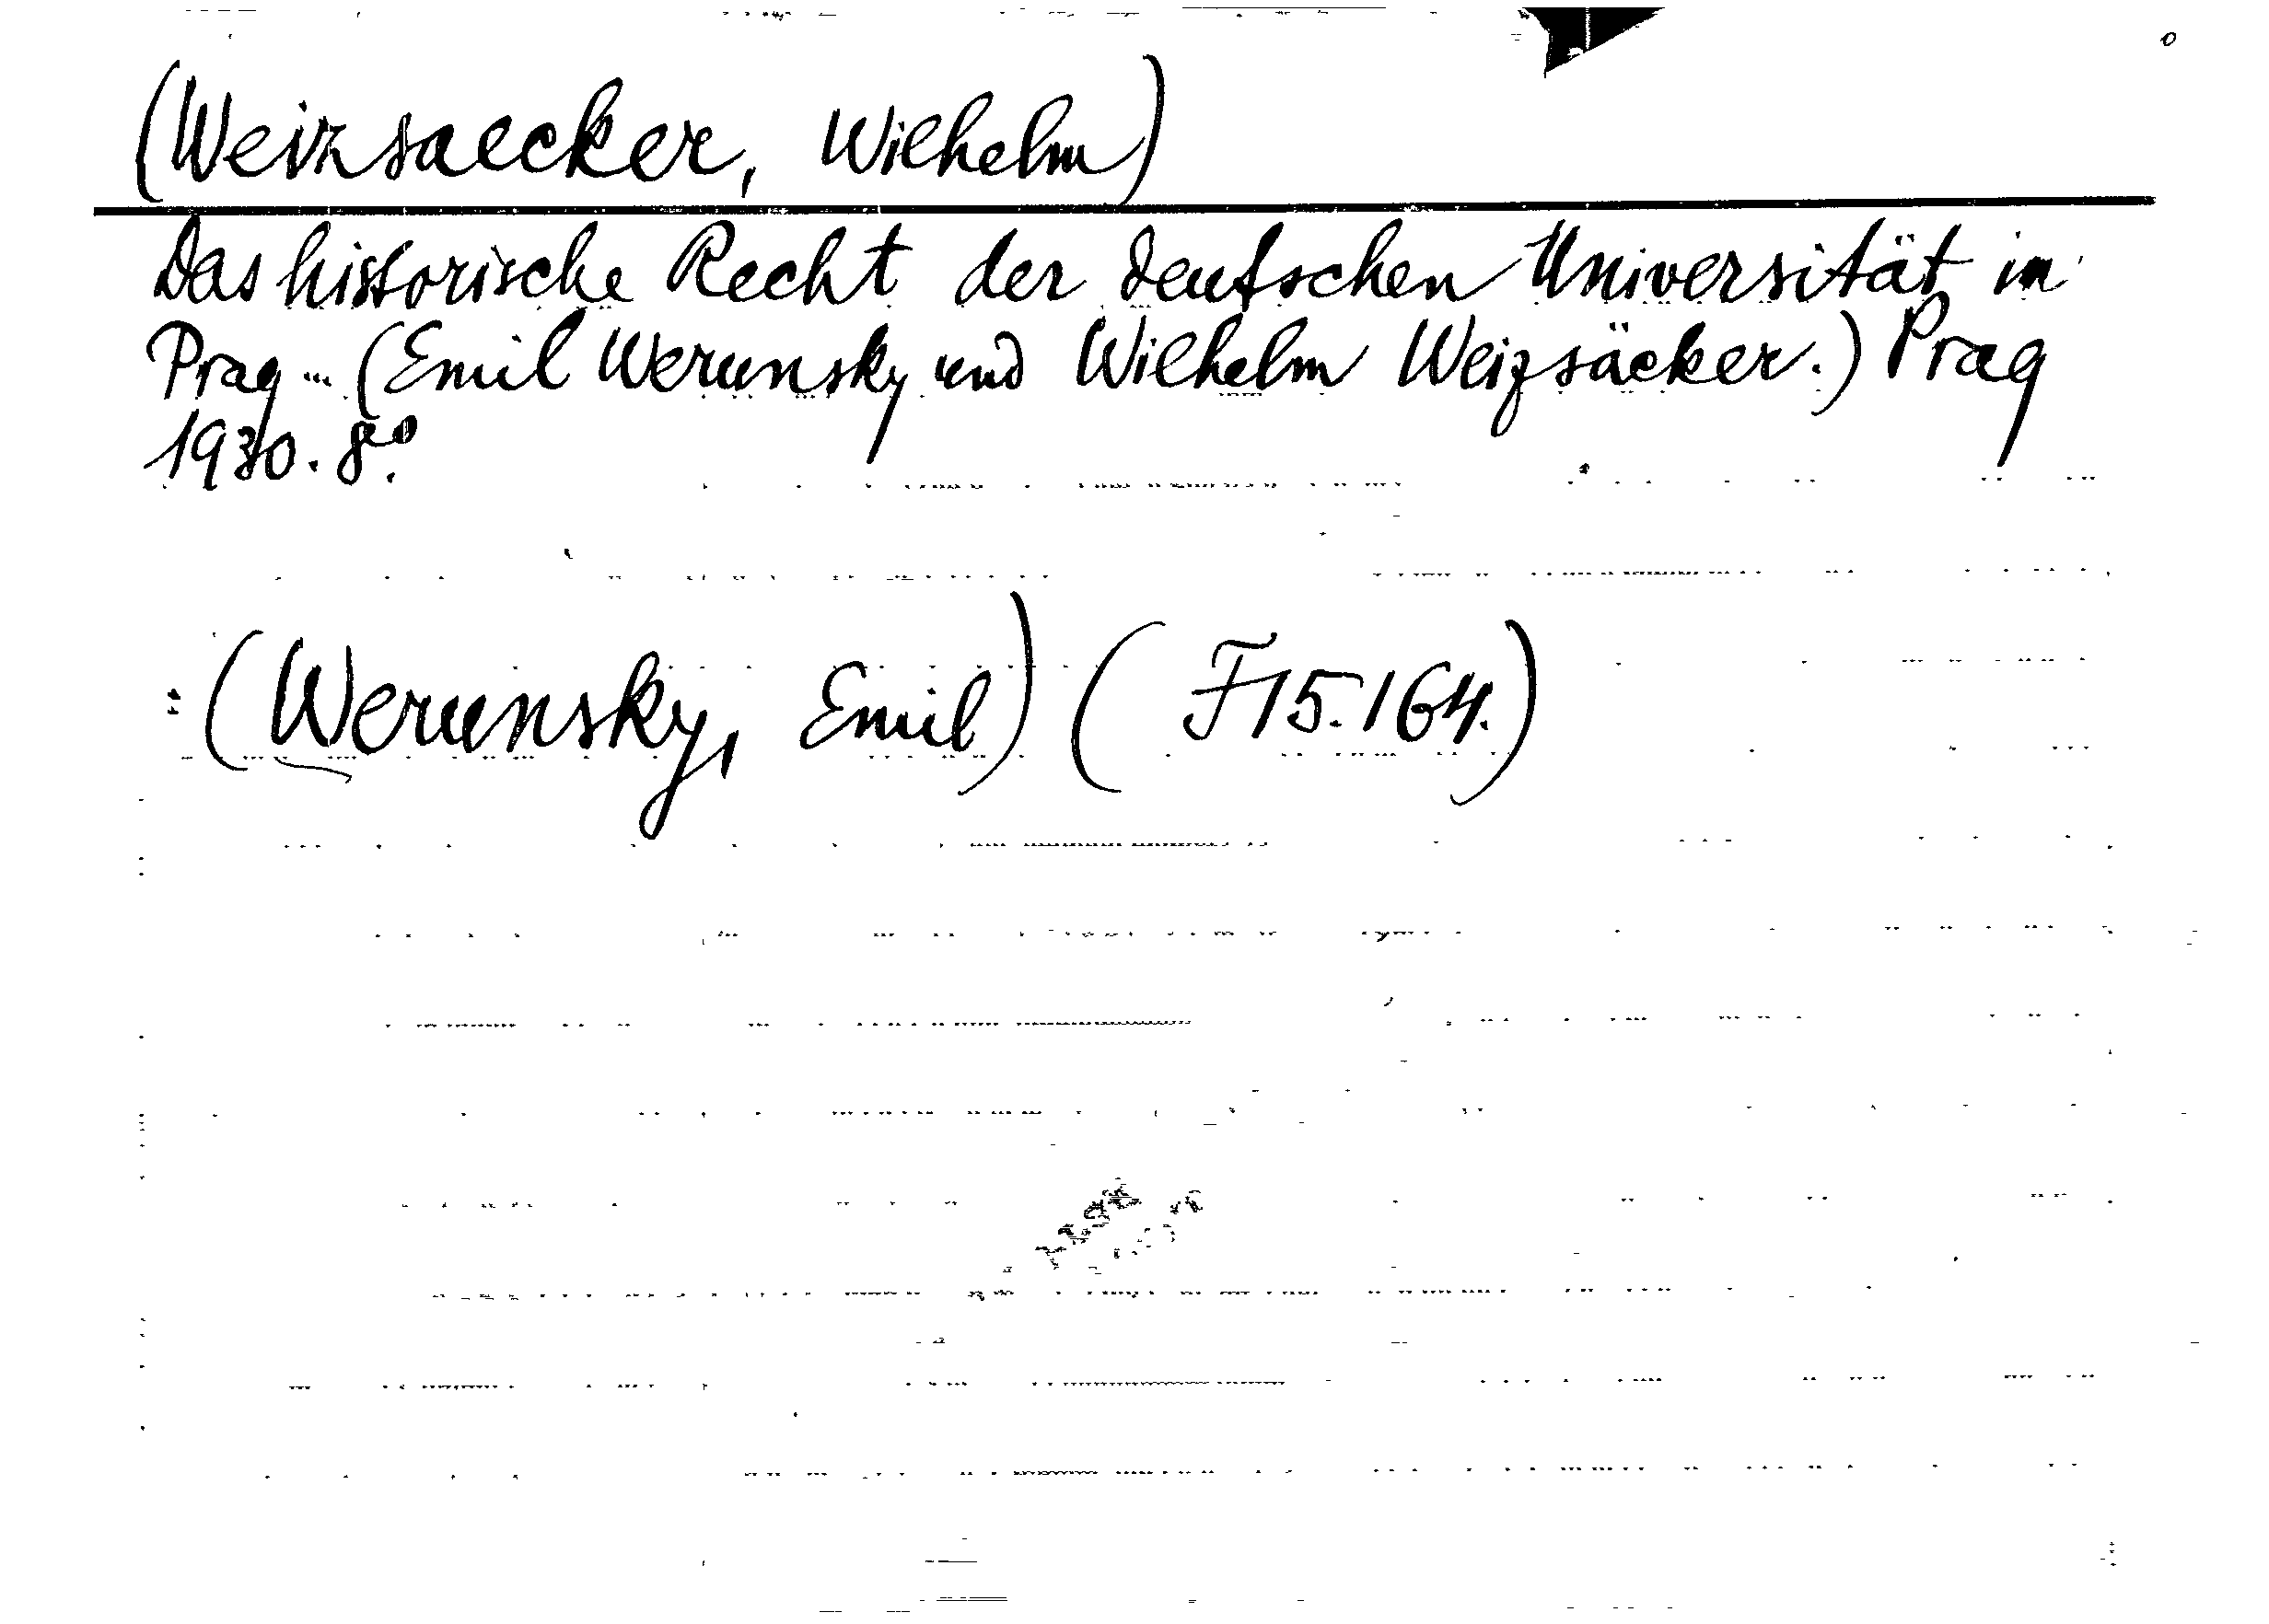 (Weizsaecker, Wilhelm)
Das historische Recht der deutschen Universität in
Prag ... (Emil Werunsky und Wilhelm Weizsäcker.) Prag
1930. 8°.
(Werunsky, Emil) (F15.164.)